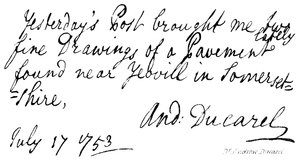 Yesterday's Post brought me two
lately
fine Drawings of a Pavement
found near Yeovill in Somerset-
=shire,
And. Ducarel
July 17 1753